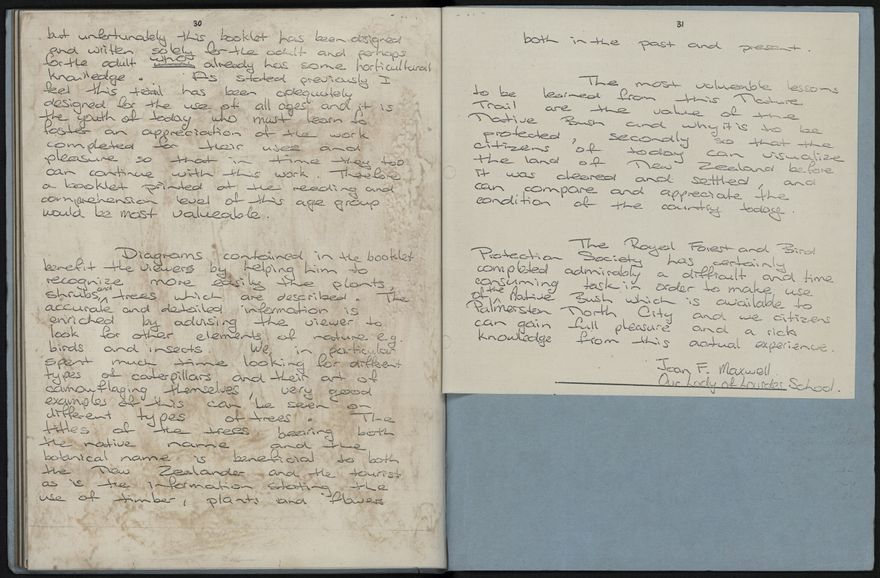 30
but unfortunately this booklet has been designed
and written solely for the adult and perhaps
for the adult who already has some horticultural
knowledge. As stated previously I
feel this trail has been adequately
designed for the use of all ages and it is
the youth of today who must learn to
foster an appreciation of the work
completed for their uses and
pleasure so that in time they too
can continue with this work. Therefore
a booklet printed at the reading and
comprehension level of this age group
would be most valueable.
Diagrams contained in the booklet
benefit the viewers by helping him to
recognize more easily the plants,
shrubs and trees which are described. The
accurate and detailed information is
enriched by advising the viewer to
look for other elements of nature e.g.
birds and insects. We, in particular
spent much time looking for different
types of caterpillars and their art of
camouflaging themselves, very good
examples of this can be seen on
different types of trees. The
titles of the trees bearing both
the native name and the
botanical name is beneficial to both
the New Zealander and the tourist
as is the information stating the
use of timber, plants and flowers
31
both in the past and present.
The most valueable lessons
to be learned from this Nature
Trail are the value of the
Native Bush and why it is to be
protected, secondly so that the
citizens of today can visualize
the land of New Zealand before
it was cleared and settled, and
can compare and appreciate the
condition of the country today.
The Royal Forest and Bird
Protection Society has certainly
completed admirably a difficult and time
consuming task in order to make use
of the Native Bush which is available to
Palmerston North City and we citizens
can gain full pleasure and a rich
knowledge from this actual experience.
Joan F. Maxwell.
Our Lady of Lourdes School.